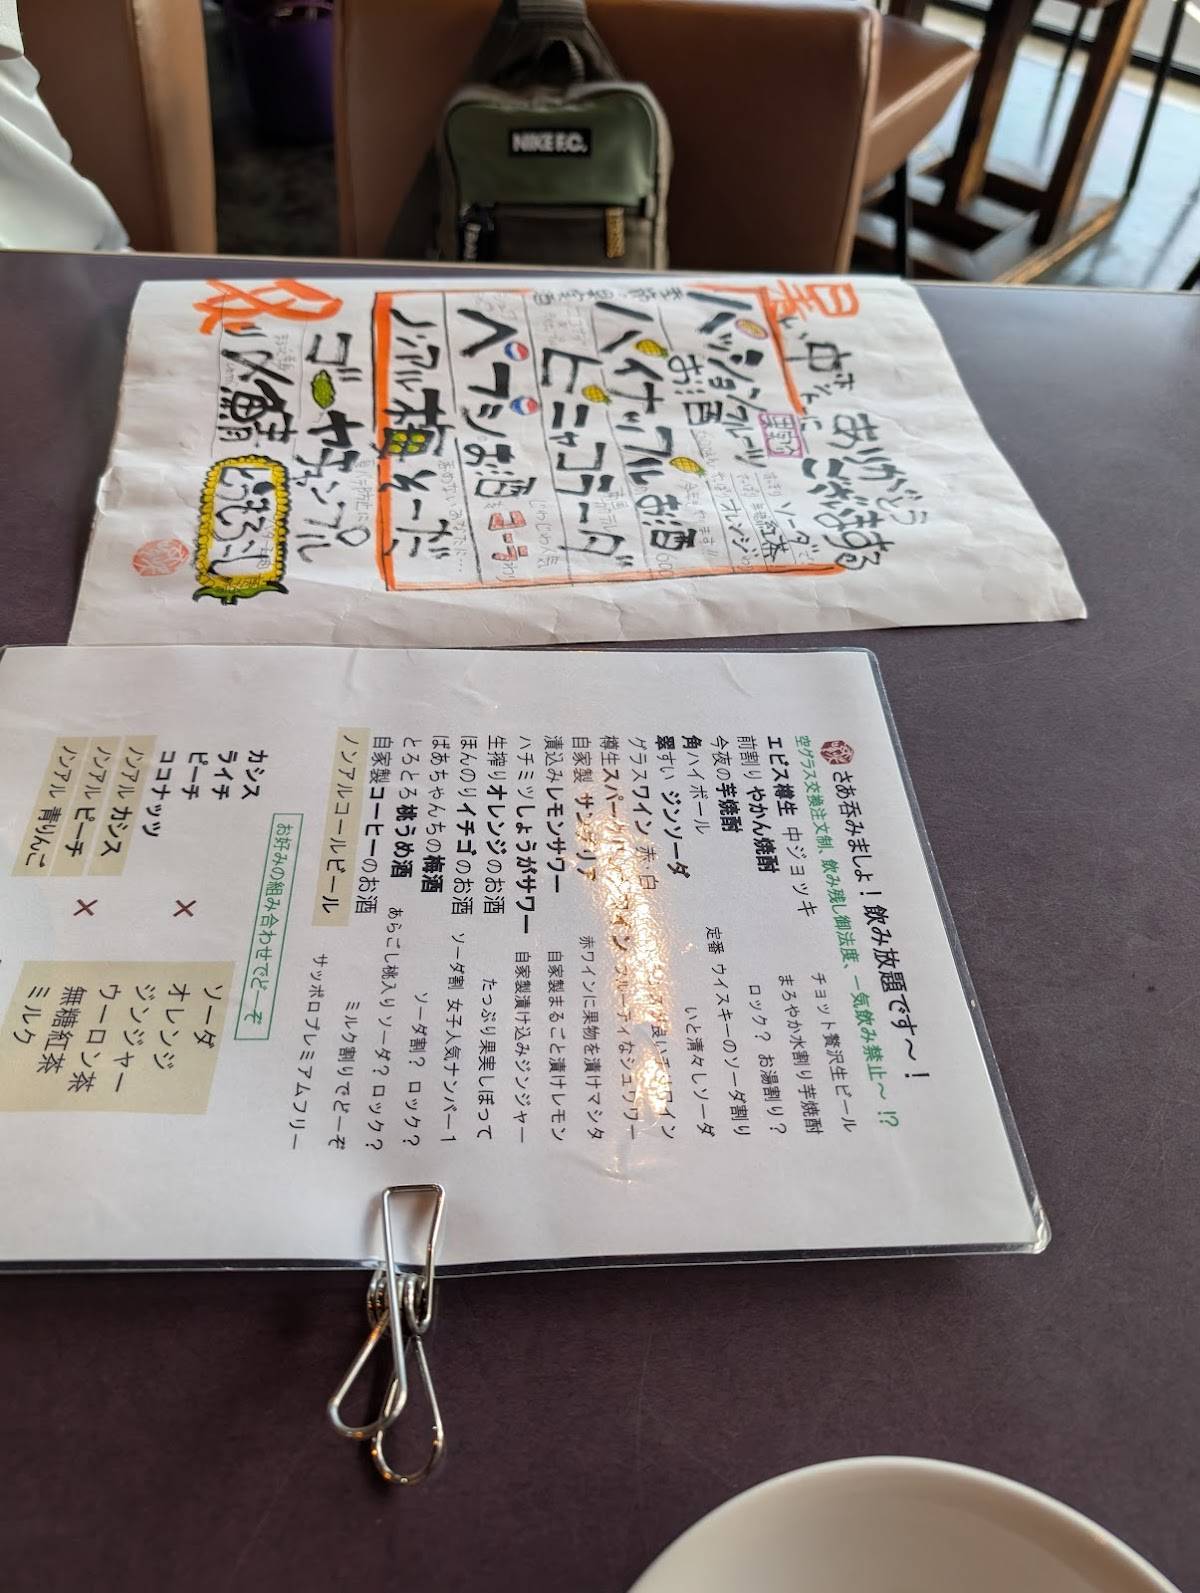 NIKE F.C.
暑い中ホントに
ありがとう
ございまする
季節の果実酒
パッションフルーツ
お酒
ソーダで
紅茶
オレンジ
パイナップルお酒
ピニャコラーダ
ペプシお酒
コーラ
ノンアル梅そーだ
ゴーヤチャンプル
〆鯖
とうもろこし
さあ呑みましょ!飲み放題です〜!
空グラス交換注文制、飲み残し御法度、一気飲み禁止〜!?
ヱビス樽生 中ジョッキ チョット贅沢生ビール
前割り やかん焼酎 まろやか水割り芋焼酎
今夜の芋焼酎 ロック? お湯割り?
角ハイボール 定番 ウイスキーのソーダ割り
翠すい ジンソーダ いと清々しソーダ
グラスワイン 赤・白
樽生スパークリングワイン フルーティなシュワワー
自家製 サングリア 赤ワインに果物を漬けマシタ
漬込みレモンサワー 自家製まるごと漬けレモン
ハチミツしょうがサワー 自家製漬け込みジンジャー
生搾りオレンジのお酒 たっぷり果実しぼって
ほんのりイチゴのお酒 ソーダ割 女子人気ナンバー1
ばあちゃんちの梅酒 ソーダ割? ロック?
とろとろ桃うめ酒 あらごし桃入り ソーダ?ロック?
自家製コーヒーのお酒 ミルク割りでどーぞ
ノンアルコールビール サッポロプレミアムフリー
お好みの組み合わせでどーぞ
カシス
ライチ
ピーチ
ココナッツ
ノンアル カシス
ノンアル ピーチ
ノンアル 青りんご
×
×
ソーダ
オレンジ
ジンジャー
ウーロン茶
無糖紅茶
ミルク